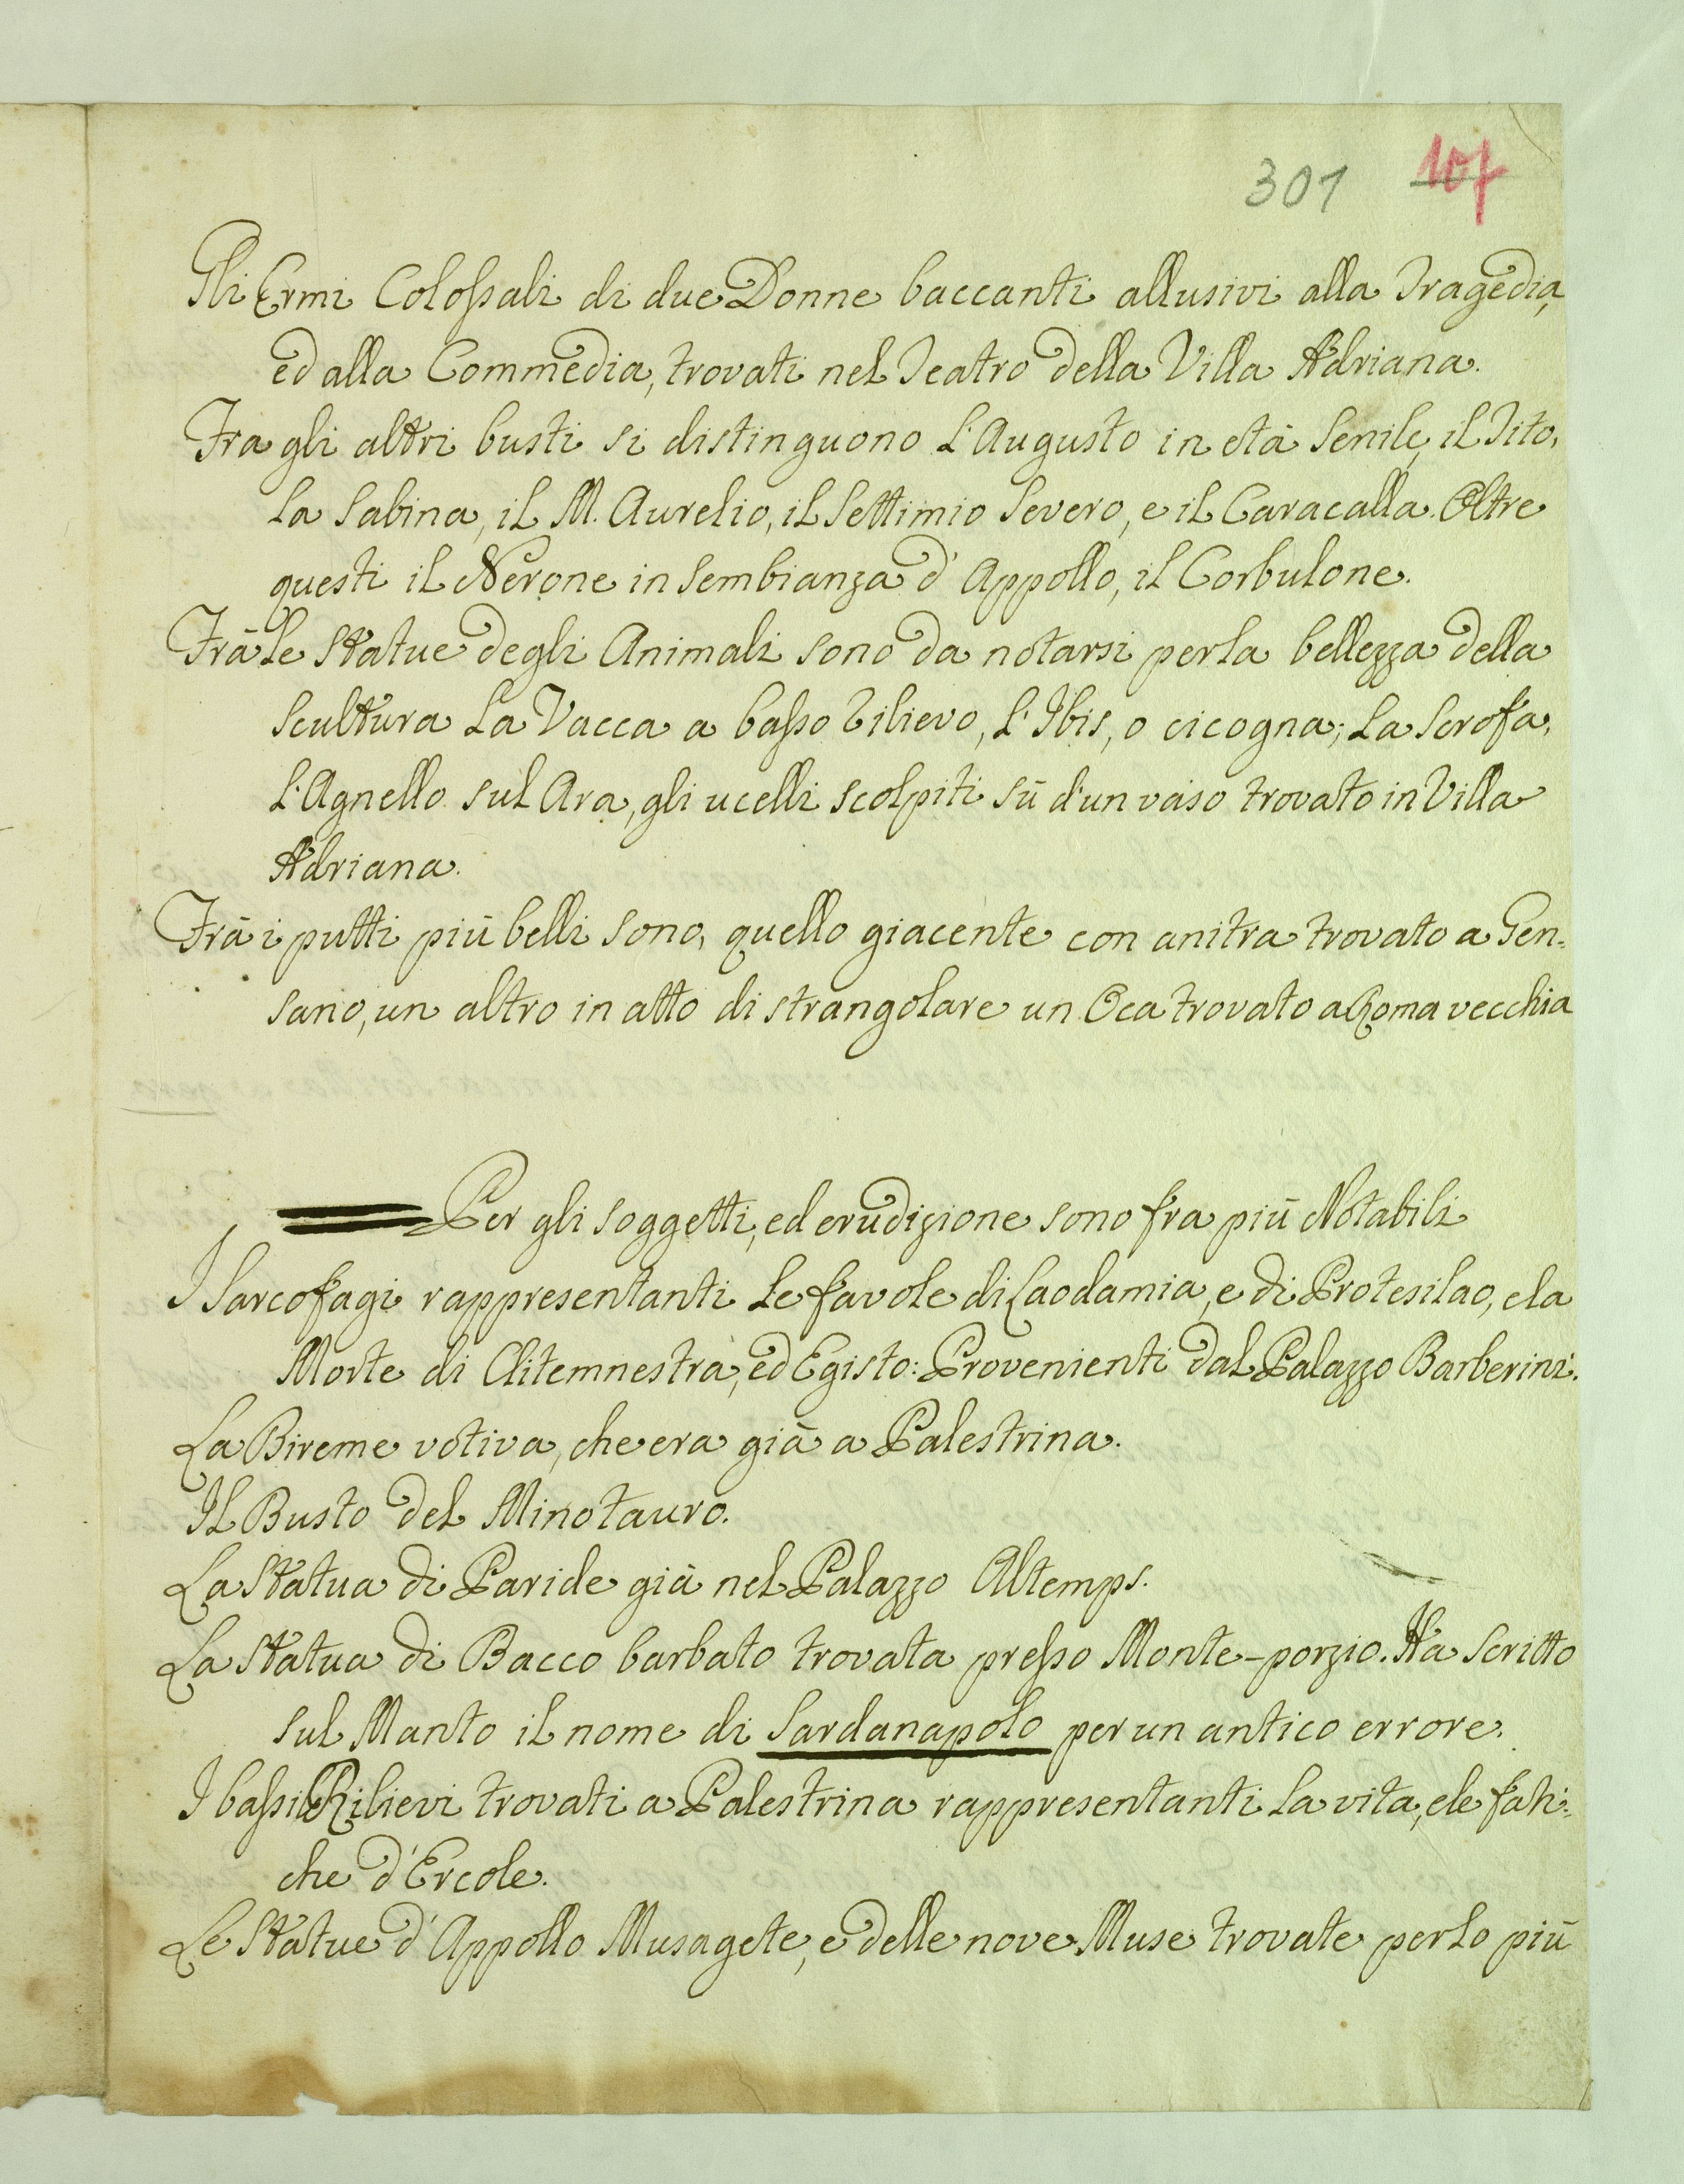 301 107
Gli Ermi Colossali di due Donne baccanti allusivi alla Tragedia,
ed alla Commedia, trovati nel Teatro della Villa Adriana.
Fra gli altri busti si distinguono l'Augusto in età senile, il Tito,
la Sabina, il M. Aurelio, il Settimio Severo, e il Caracalla. Oltre
questi il Nerone in sembianza d'Appollo, il Corbulone.
Frà le Statue degli Animali sono da notarsi per la bellezza della
Scultura la Vacca a basso rilievo, l'Ibis, o cicogna; la Scrofa,
l'Agnello sul Ara, gli ucelli scolpiti sù d'un vaso trovato in Villa
Adriana.
Frà i putti più belli sono, quello giacente con anitra trovato a Gen=
sano, un altro in atto di strangolare un Oca trovato a Roma vecchia
Per gli soggetti, ed erudizione sono fra più Notabili
I Sarcofagi rappresentanti le favole di Laodamia, e di Protesilao, e la
Morte di Clitemnestra, ed Egisto: Provenienti dal Palazzo Barberini.
La Bireme votiva, che era già a Palestrina.
Il Busto del Minotauro.
La Statua di Paride già nel Palazzo Altemps.
La Statua di Bacco barbato trovata presso Monte-porzio. Ha scritto
sul Manto il nome di Sardanapolo per un antico errore.
I bassi Rilievi trovati a Palestrina rappresentanti la vita, e le fati=
che d'Ercole.
Le Statue d'Appollo Musagete, e delle nove Muse trovate per lo più